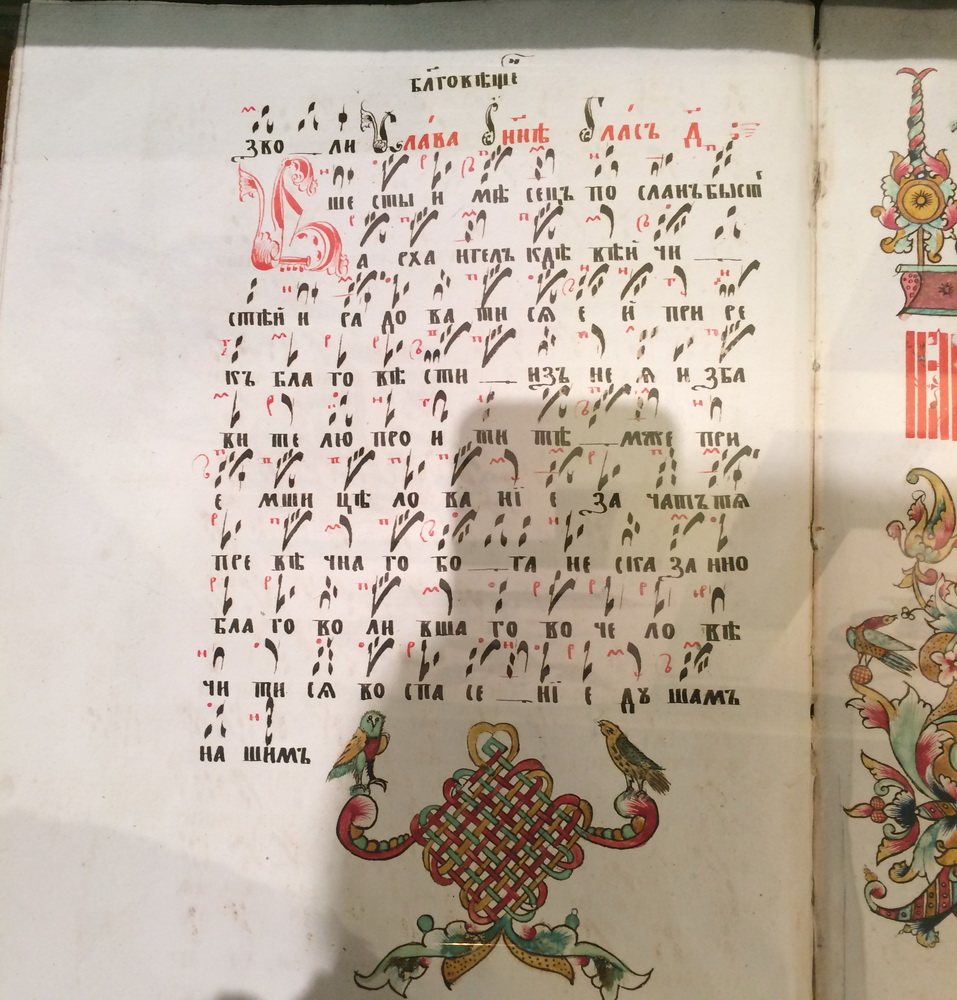 БЛ҃ГОВѢЩЕ
ЗВО ЛИ СЛАВА И НН҃Ѣ ГЛАСЪ Д҃
ВШЕСТЫИ МѢСЕЦЪ ПОСЛАНЪ БЫСТ
АРХАНГЕЛЪ КДѢВѢЙ ЧИ
СТѢЙ И РАДОВАТИСЯ ЕЙ ПРИРЕ
КЪ БЛАГОВѢСТИ ИЗЪ НЕЯ ИЗБА
ВИТЕЛЮ ПРОИТИ ТѢМЖЕ ПРИ
ЕМШИ ЦѢЛОВАНІЕ ЗАЧАТЪ ТЯ
ПРЕВѢЧНАГО БОГА НЕСКАЗАННО
БЛАГОВОЛИВША ГО ВОЧЕЛОВѢ
ЧИТИСЯ ВО СПАСЕНІЕ ДУШАМЪ
НАШИМЪ